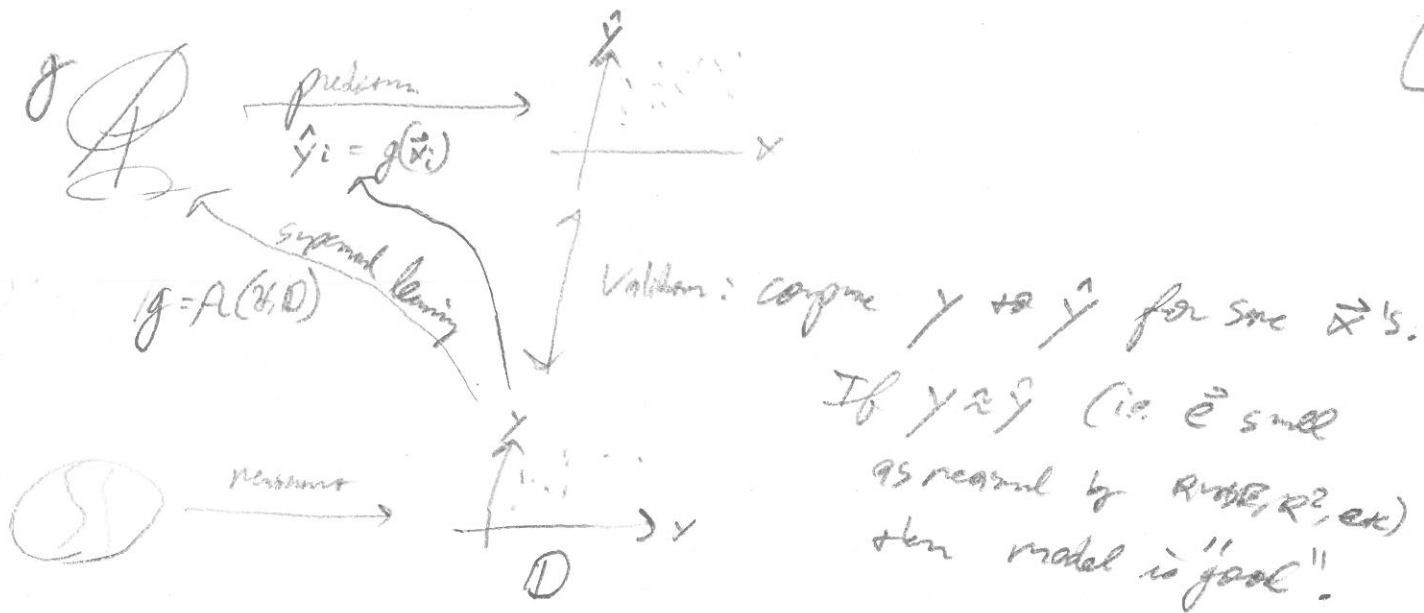 g
prediction
ŷi = g(x⃗i)
ŷ
x
supervised learning
g = A(H, D)
Validation: compare y to ŷ for some x⃗'s.
If y ≈ ŷ (i.e. e⃗ small
as measured by RMSE, R², etc)
then model is "good".
measurement
y
x
D